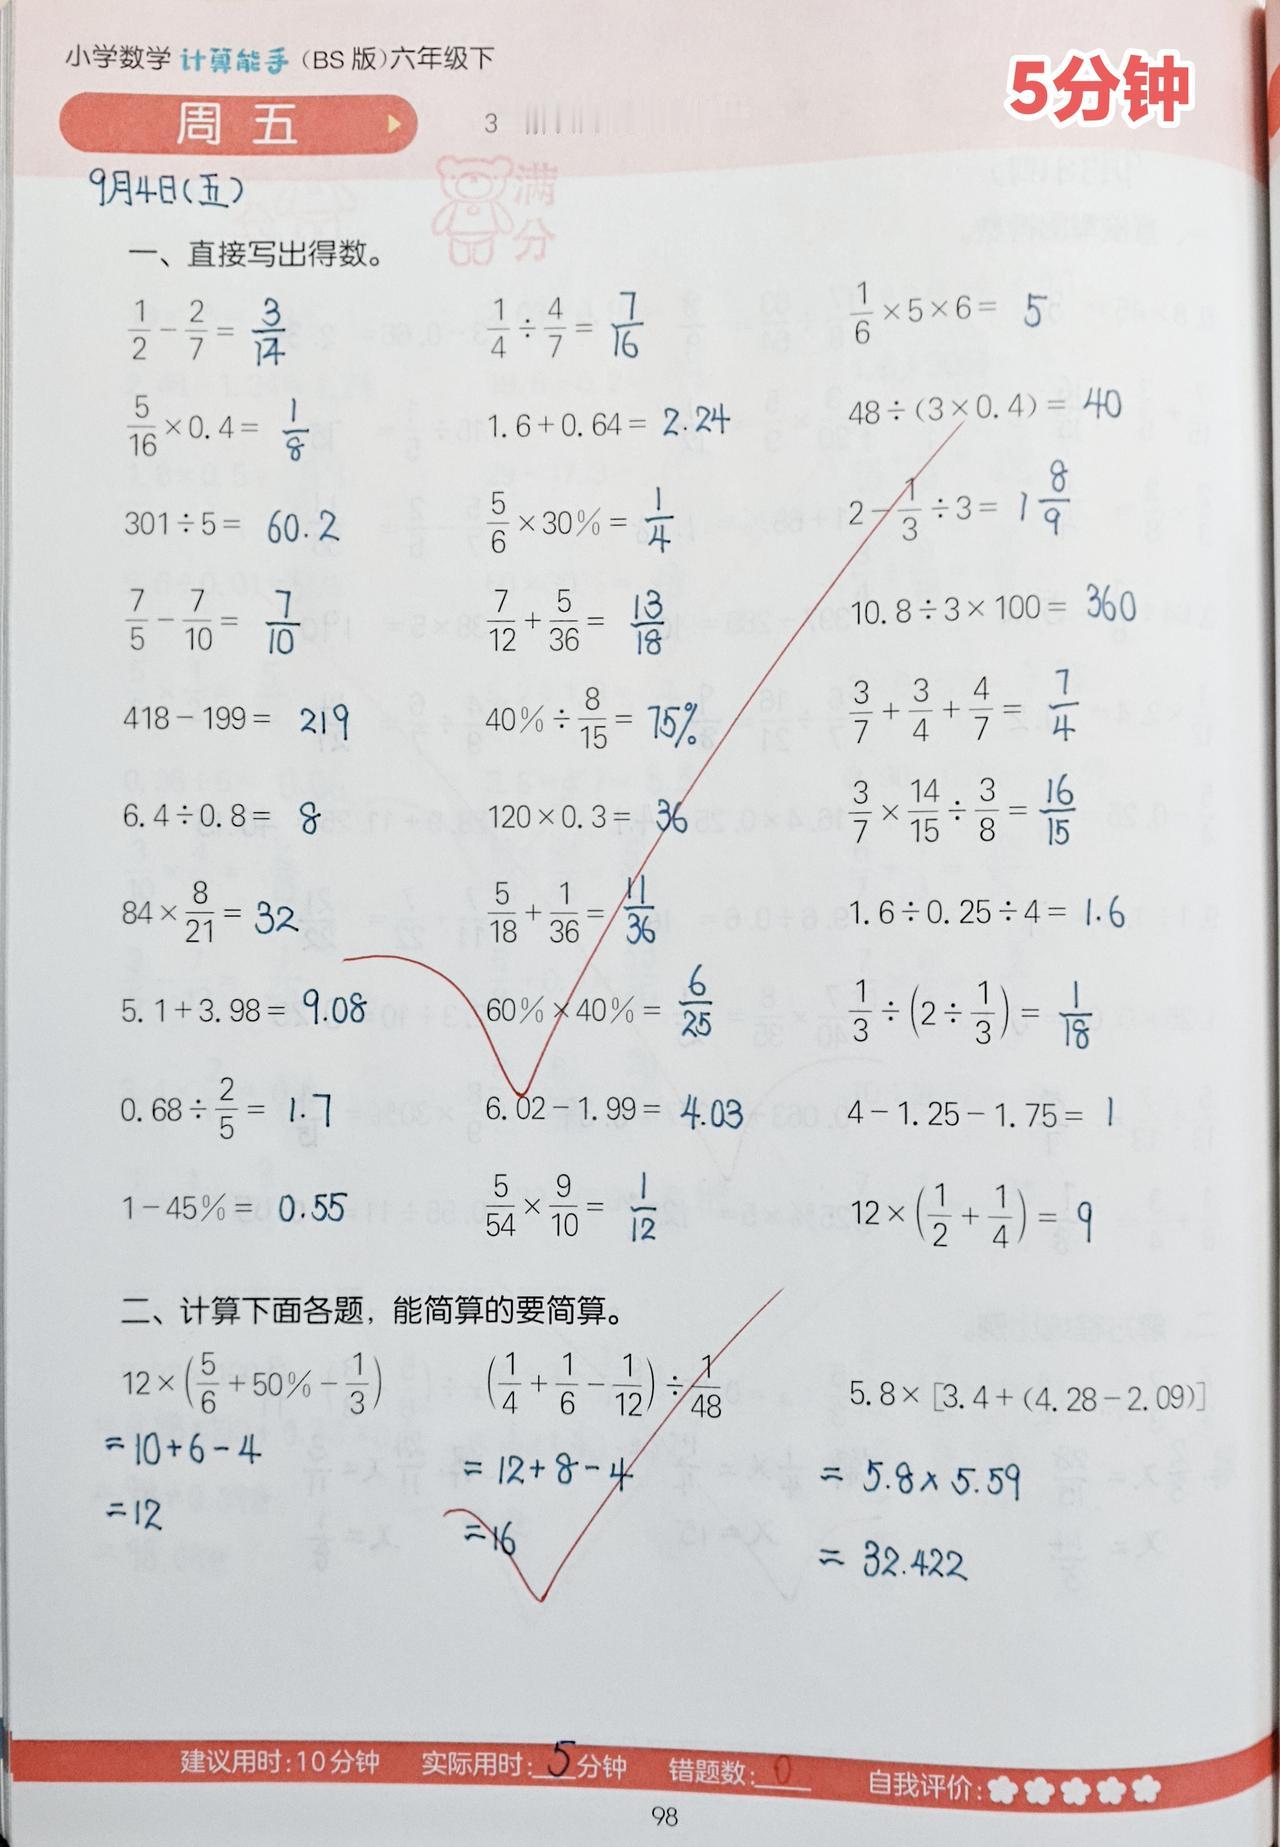 小学数学 计算能手（BS版）六年级下
5分钟
周五
3
9月4日(五)
满分
一、直接写出得数。
1/2 - 2/7 = 3/14 1/4 ÷ 4/7 = 7/16 1/6 ×5×6= 5
5/16 ×0.4= 1/8 1.6+0.64= 2.24 48÷(3×0.4)= 40
301÷5= 60.2 5/6 ×30%= 1/4 2- 1/3 ÷3= 1 8/9
7/5 - 7/10 = 7/10 7/12 + 5/36 = 13/18 10.8÷3×100= 360
418-199= 219 40%÷ 8/15 = 75% 3/7 + 3/4 + 4/7 = 7/4
6.4÷0.8= 8 120×0.3= 36 3/7 × 14/15 ÷ 3/8 = 16/15
84× 8/21 = 32 5/18 + 1/36 = 11/36 1.6÷0.25÷4= 1.6
5.1+3.98= 9.08 60%×40%= 6/25 1/3 ÷(2÷ 1/3 )= 1/18
0.68÷ 2/5 = 1.7 6.02-1.99= 4.03 4-1.25-1.75= 1
1-45%= 0.55 5/54 × 9/10 = 1/12 12×( 1/2 + 1/4 )= 9
二、计算下面各题，能简算的要简算。
12×( 5/6 +50%- 1/3 ) ( 1/4 + 1/6 - 1/12 )÷ 1/48 5.8×[3.4+(4.28-2.09)]
=10+6-4 =12+8-4 =5.8×5.59
=12 =16 =32.422
建议用时:10分钟 实际用时:5分钟 错题数:0 自我评价:
98